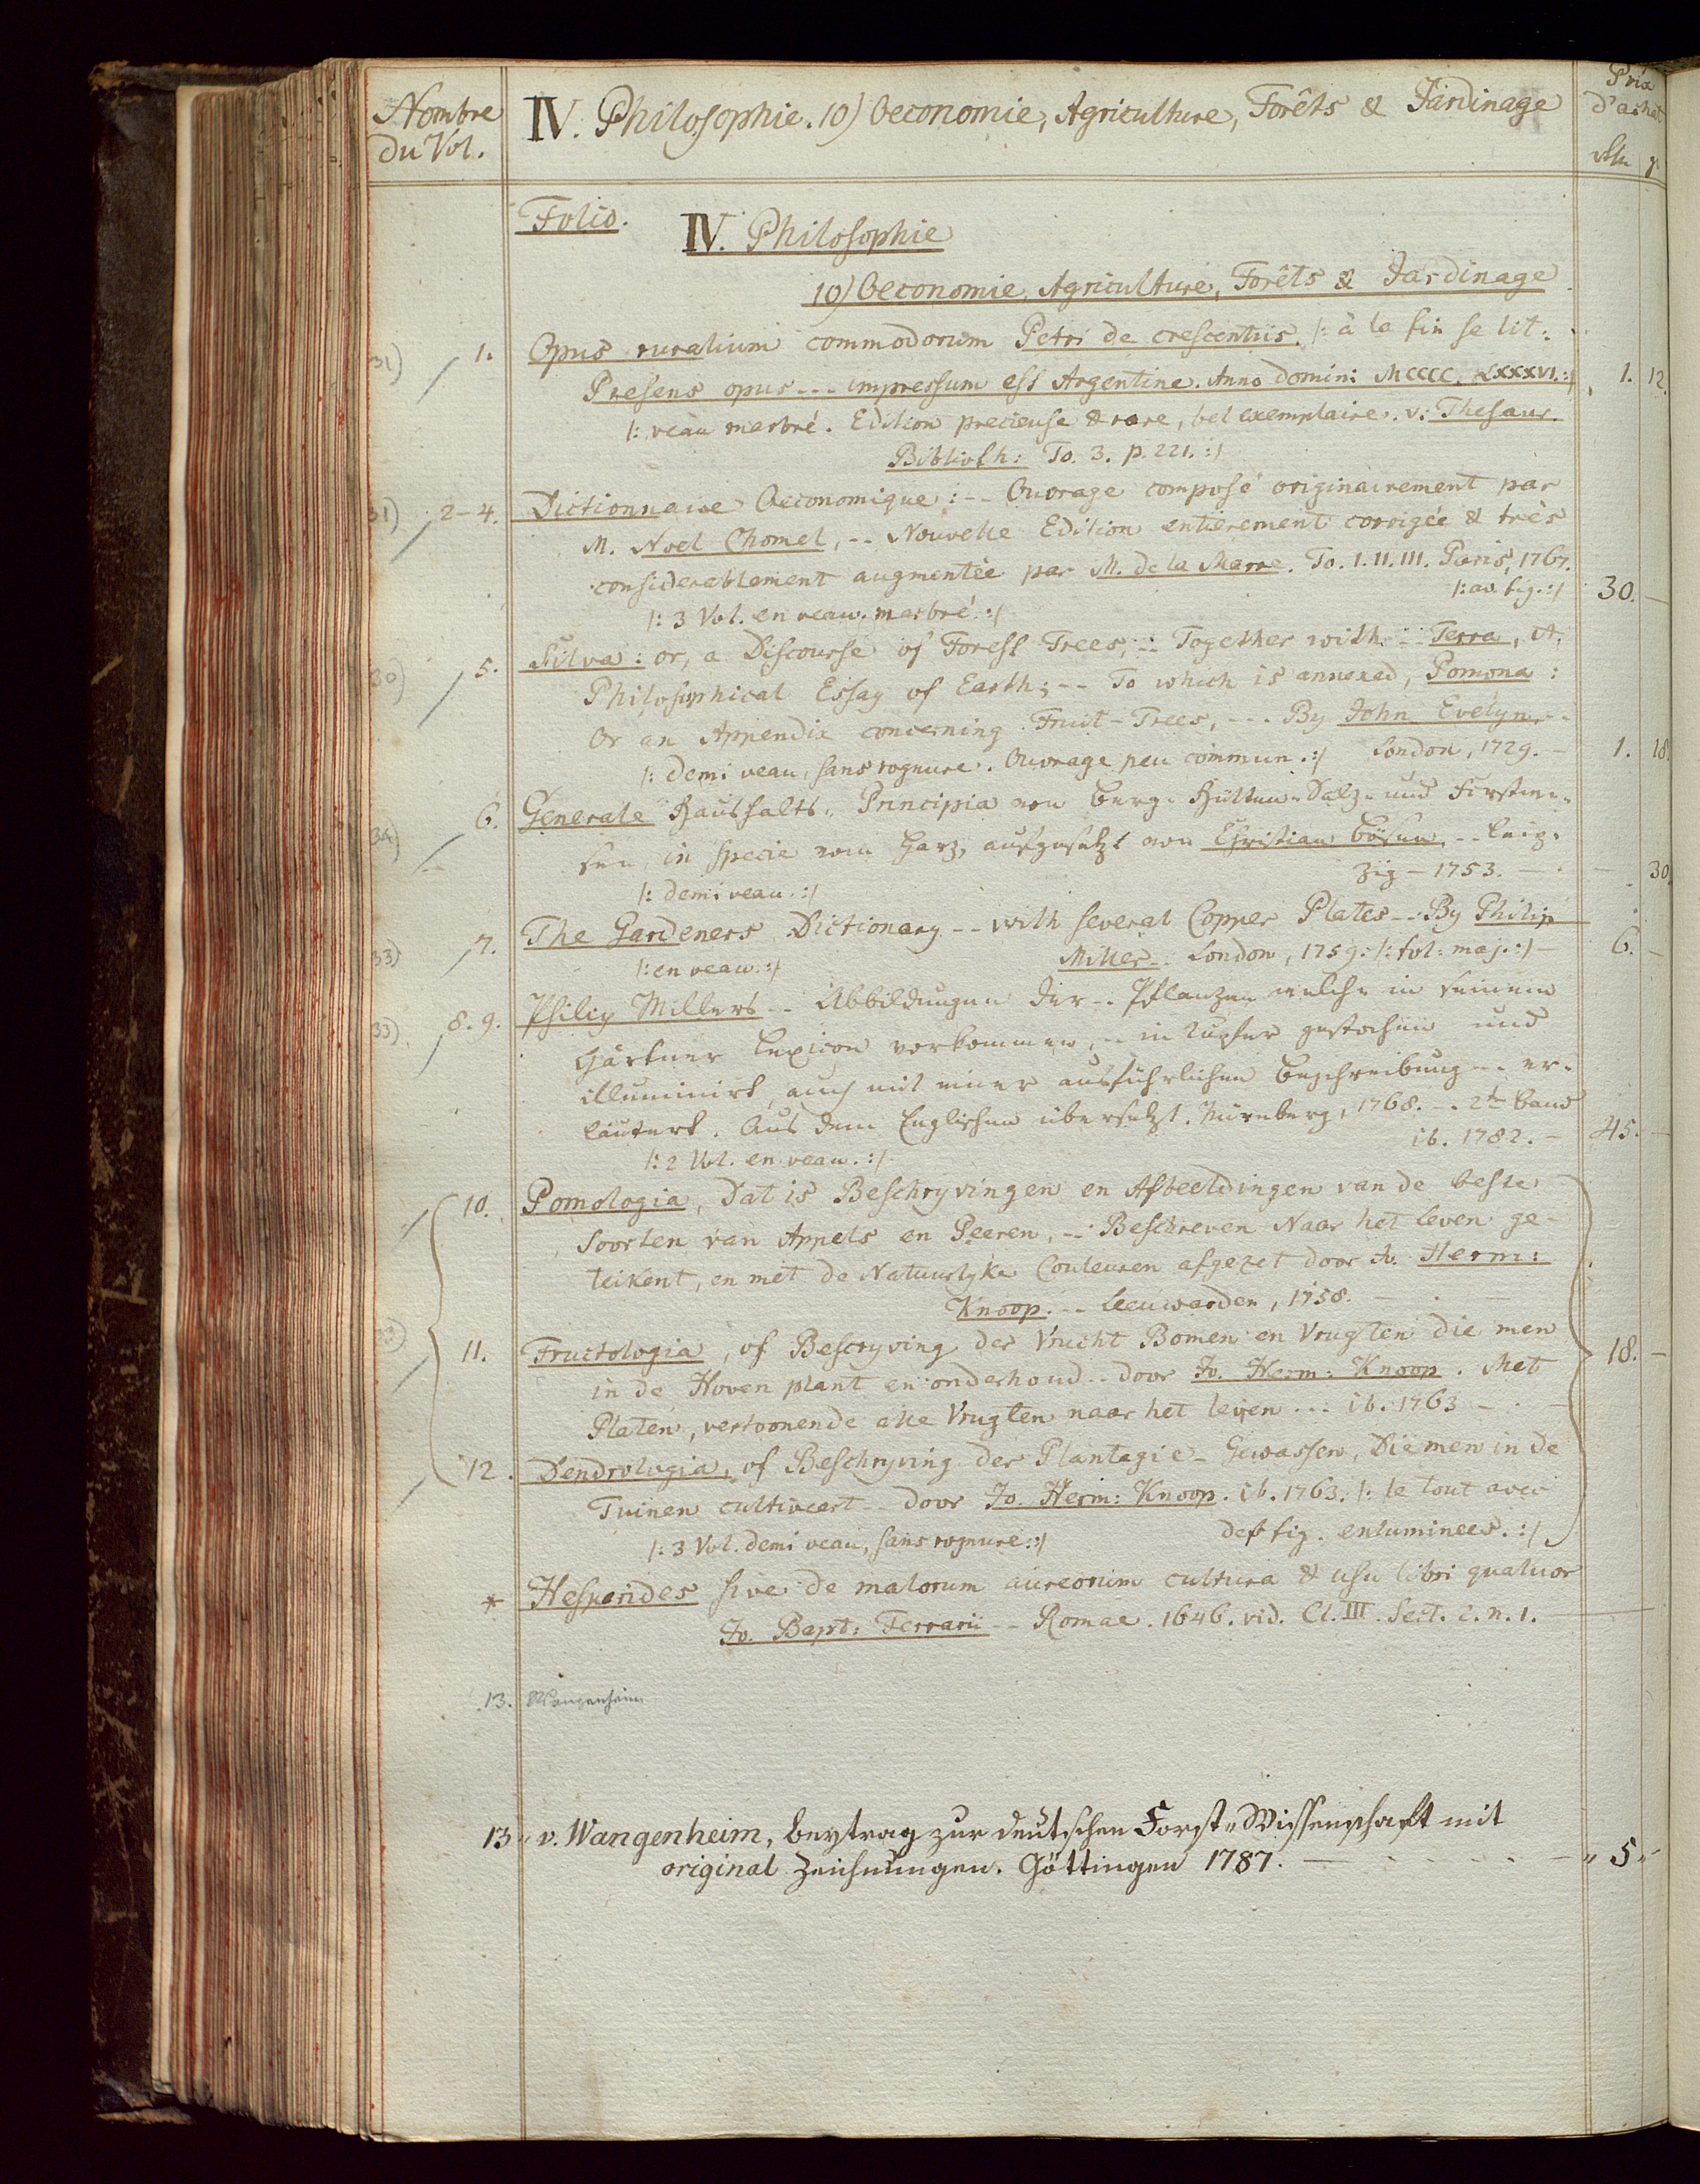 Nombre du Vol.
IV. Philosophie. 10) Oeconomie, Agriculture, Forêts & Jardinage
Prix d'achat
Folio.
IV. Philosophie
10) Oeconomie, Agriculture, Forêts & Jardinage
31) 1. Opus ruralium commodorum Petri de crescentiis. |: à la fin se lit:
Presens opus --- impressum est Argentine. Anno domini MCCCC. LXXXVI. :| 1. 12.
|: veau marbré. Edition precieuse & rare, bel exemplaire. v: Thesaur.
Biblioth: To. 3. p. 221. :|
31) 2-4. Dictionnaire Oeconomique: -- Ouvrage composé originairement par
M. Noel Chomel, -- Nouvelle Edition entierement corrigée & très
considerablement augmentée par M. de la Marre. To. I. II. III. Paris, 1767.
|: 3 Vol. en veau marbré :| |: av. fig. :| 30. –
30) 5. Silva: or, a Discourse of Forest Trees, -- Together with -- Terra, A.
Philosophical Essay of Earth; -- To which is annexed, Pomona:
Or an Appendix concerning Fruit-Trees, --- By John Evelyn --
|: demi veau, sans rognure. Ouvrage peu commun. :| London, 1729. – 1. 18.
34) 6. Generale Haushalts-Principia von Berg- Hütten- Saltz- und Forstwe-
sen, in specie vom Harz, aufgesetzt von Christian Bösen, -- Leip-
|: demi veau. :| zig – 1753. – – 30.
33) 7. The Gardeners Dictionary -- with several Copper Plates -- By Philip
|: en veau. :| Miller -- London, 1759. |: fol: maj. :| – 6. –
33) 8. 9. Philip Millers -- Abbildungen der -- Pflanzen welche in seinem
Gärtner Lexicon vorkommen, -- in Kupfer gestochen und
illuminirt, auch mit einer ausführlichen Beschreibung -- er-
läutert. Aus dem Englischen übersetzt. Nürnberg, 1768. -- 2te Band
|: 2 Vol. en veau. :| ib. 1782. – 45. –
10. Pomologia, Dat is Beschryvingen en Afbeeldingen van de beste
Soorten van Appels en Peeren, -- Beschreven Naar het leven ge-
teikent, en met de Natuurlyke Couleuren afgezet door Jo. Herm:
Knoop. -- Leeuwarden, 1758. –
33) 11. Fructologia, of Bescryving der Vrucht Bomen en Vrugten die men
in de Hoven plant en onderhoud -- door Jo. Herm: Knoop. Met
Platen, vertoonende alle Vrugten naar het leven --- ib. 1763 – 18. –
12. Dendrologia, of Beschryving der Plantagie-Gewassen, Die men in de
Tuinen cultiveert -- door Jo. Herm: Knoop. ib. 1763. |: le tout avec
|: 3 Vol. demi veau, sans rognure. :| des fig. enluminees. :|
* Hesperides sive de malorum aureorum cultura & usu libri quatuor
Jo. Bapt: Ferrarii -- Romae. 1646. vid. Cl. III. Sect. 2. n. 1.
13. Wangenheim
13. v. Wangenheim, beytrag zur deutschen Forst-Wissenschaft mit
original Zeichnungen. Göttingen 1787. – 5